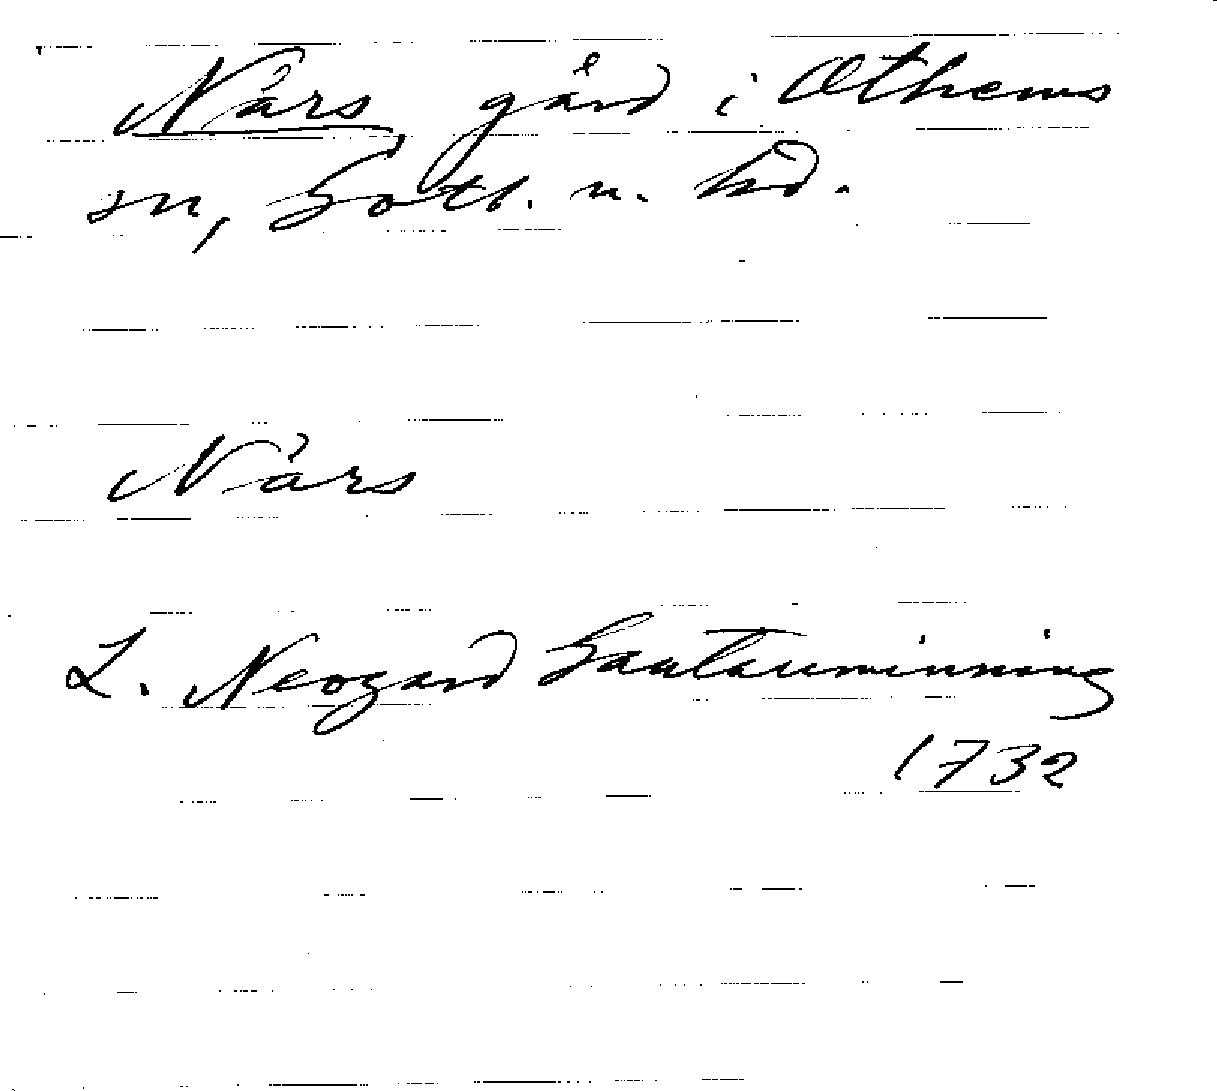 Nårs, gård i Othems
sn, Gotl. n. hd.
Nårs
L. Neogard Gautauminning
1732